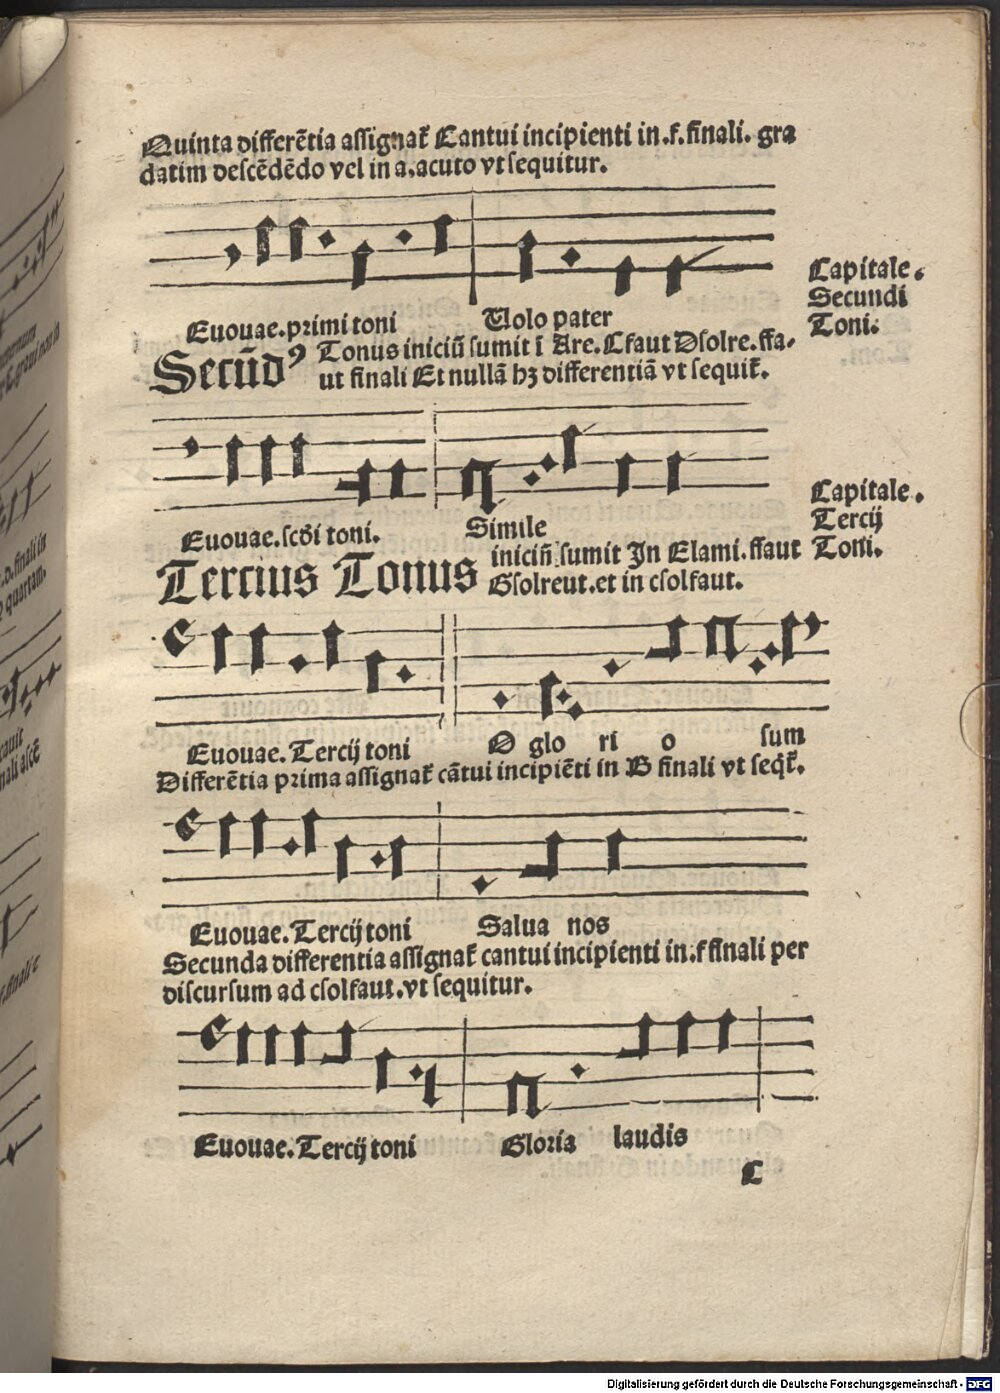 Quinta differẽtia assignat᷑ Cantui incipienti in.f.finali. gra
datim descẽdẽdo vel in a.acuto vt sequitur.
Euouae.primi toni Uolo pater
Capitale.
Secundi
Toni.
Secũdꝰ Tonus iniciũ sumit ĩ Are.Cfaut Dsolre.ffa-
ut finali Et nullã hꝫ differentiã vt sequit᷑.
Euouae.scđi toni. Simile
Capitale.
Tercij
Toni.
Tercius Tonus iniciũ sumit In Elami.ffaut
Gsolreut.et in csolfaut.
Euouae.Tercij toni O glo ri o sum
Differẽtia prima assignat᷑ cãtui incipiẽti in B finali vt seq̃t᷑.
Euouae.Tercij toni Salua nos
Secunda differentia assignat᷑ cantui incipienti in.f finali per
discursum ad csolfaut.vt sequitur.
Euouae.Tercij toni Gloria laudis
C
quartam.
Digitalisierung gefördert durch die Deutsche Forschungsgemeinschaft - DFG